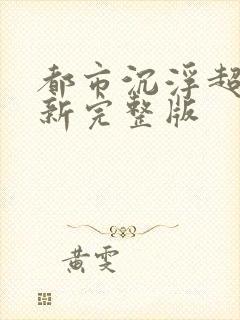 都市沉浮超
新完整版
黄雯